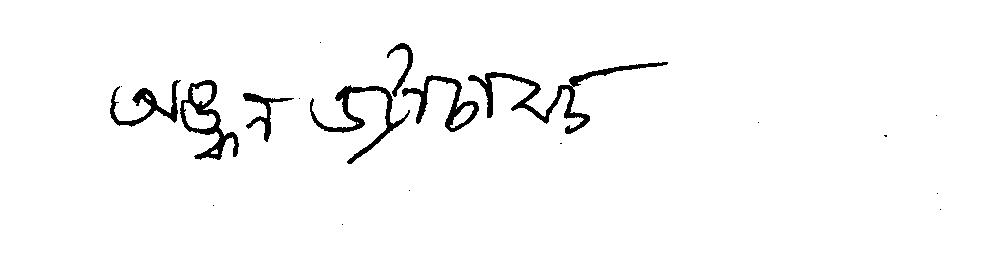 অঙ্কন ভট্টাচার্য